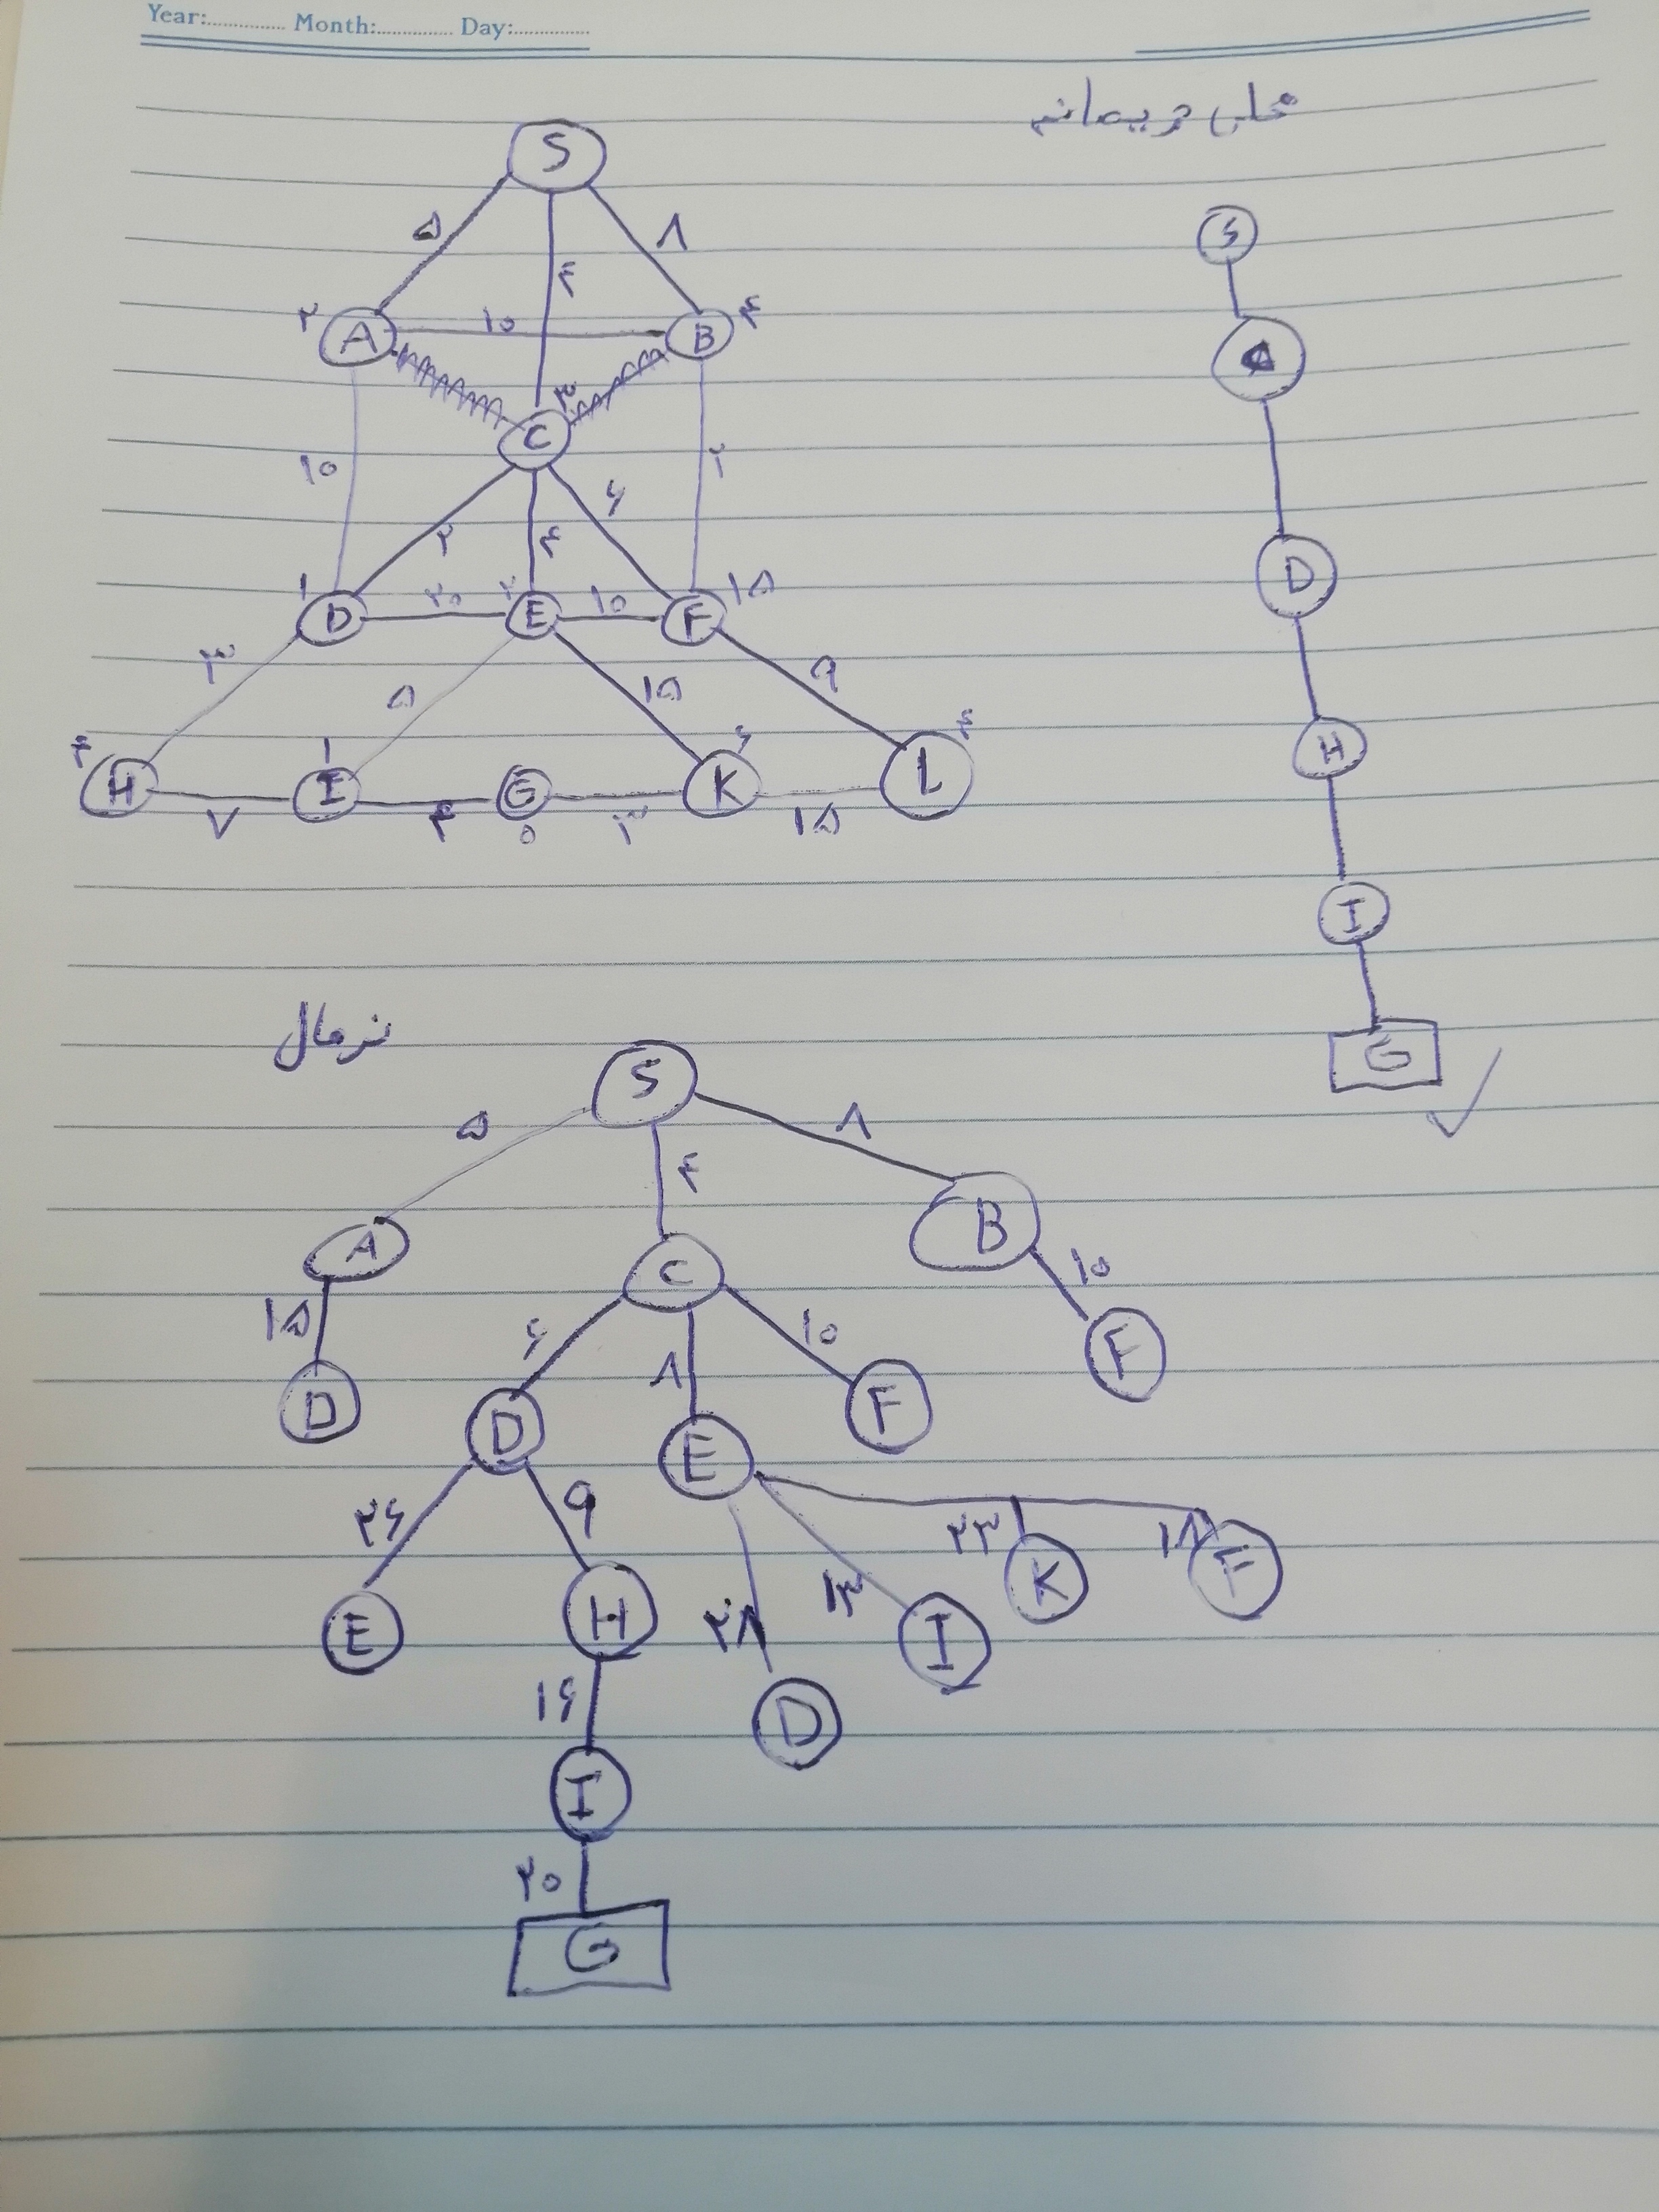 Year:............ Month:............ Day:............
محلی حریصانه
S
۵ ۴ ۸
۲ A ۱۰ B ۴
۳
C
۱۰ ۲ ۴ ۶ ۲
۱ D ۲۰ ۲ E ۱۰ F ۱۵
۳ ۵ ۱۵ ۹
۴ H ۷ ۱ I ۴ G ۰ ۳ K ۶ ۱۵ L ۴
S
D
H
I
G
نرمال
S
۵ ۴ ۸
A C B
۱۵ ۶ ۸ ۱۰ ۱۰
D D E F F
۲۶ ۹ ۲۸ ۱۳ ۲۳ ۱۸
E H D I K F
۱۶
I
۲۰
G